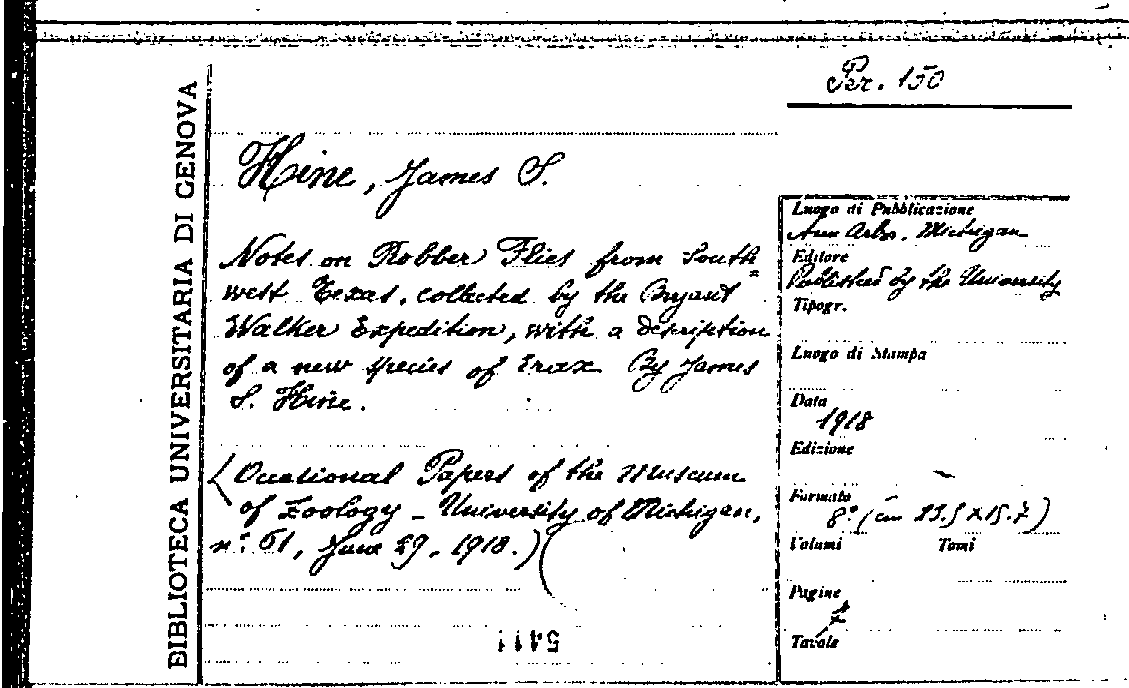 Per. 150
BIBLIOTECA UNIVERSITARIA DI GENOVA
Hine, James S.
Notes on Robber Flies from South=
west Texas, collected by the Bryant
Walker Expedition, with a description
of a new species of Erax By James
S. Hine.
(Occasional Papers of the Museum
of Zoology - University of Michigan,
n.° 61, June 29, 1918.)
5411
Luogo di Pubblicazione
Ann Arbor, Michigan
Editore
Published by the University
Tipogr.
Luogo di Stampa
Data
1918
Edizione
Formato
8.° (cm 23.5 X 15.7)
Volumi Tomi
Pagine
Tavole